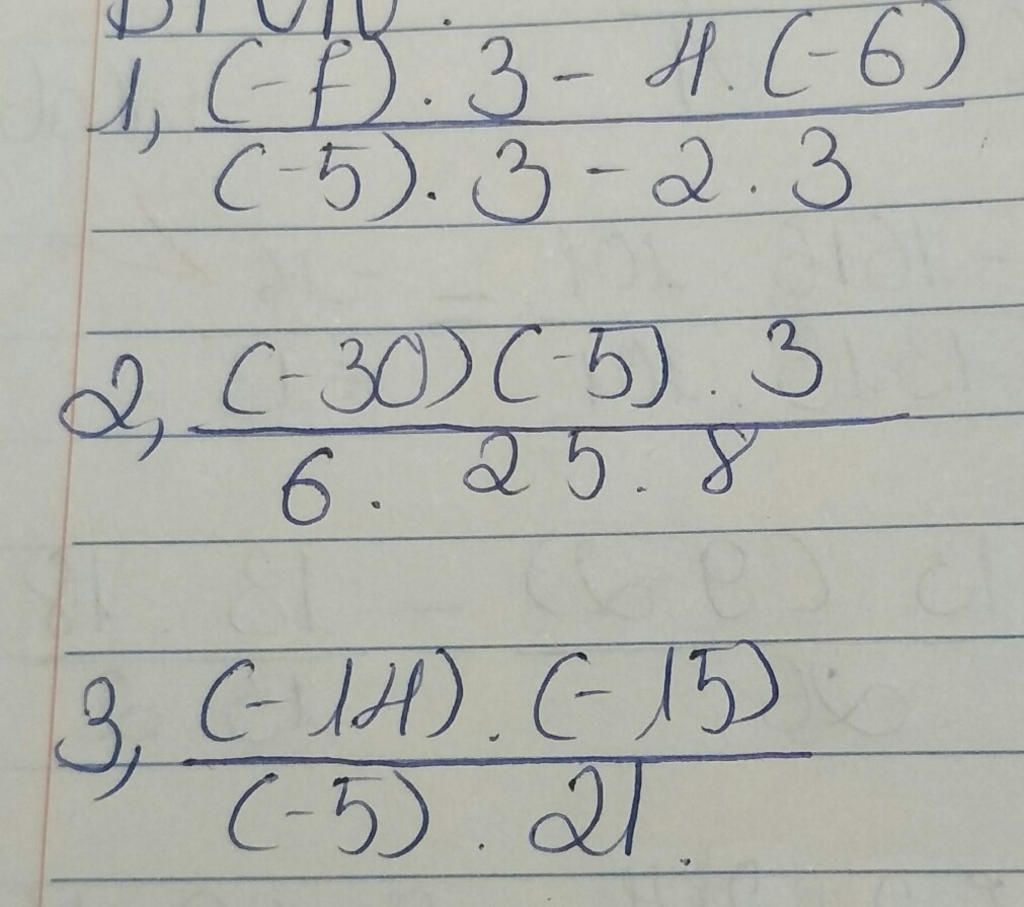 1, (-7) . 3 - 4 . (-6)
(-5) . 3 - 2 . 3
2, (-30) (-5) . 3
6 . 25 . 8
3, (-14) . (-15)
(-5) . 21.